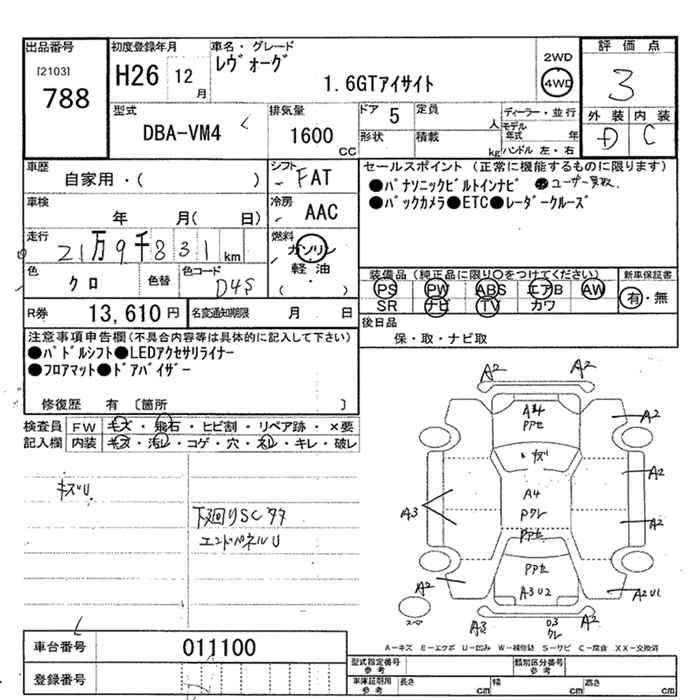 出品番号
[2103]
788
初度登録年月
H26 12月
車名・グレード
レヴォーグ
1.6GTアイサイト
2WD
4WD
評価点
3
外装 内装
D C
型式
DBA-VM4
排気量
1600
CC
ドア 5
形状
定員
人
積載
kg
ディーラー・並行
モデル年式 年
ハンドル 左・右
車歴
自家用・( )
シフト
FAT
車検
年 月( 日)
冷房
AAC
走行
21万9千831km
燃料
ガソリン
軽油
( )
色
クロ
色替
色コード
D4S
セールスポイント (正常に機能するものに限ります)
●パナソニックビルトインナビ ●ユーザー買取.
●バックカメラ●ETC●レーダークルーズ
装備品(純正品に限り○をつけてください)
PS PW ABS エアB AW
SR ナビ TV カワ
新車保証書
有・無
R券 13,610円
名変通知期限 月 日
後日品
保・取・ナビ取
注意事項申告欄(不具合内容等は具体的に記入して下さい)
●パドルシフト●LEDアクセサリライナー
●フロアマット●ドアバイザー
修復歴 有 〔箇所 〕
検査員記入欄
FW キズ・飛石・ヒビ割・リペア跡・×要
内装 キズ・汚レ・コゲ・穴・スレ・キレ・破レ
キズU
下廻りSCサヲ
エンドパネルU
A2
A2
A4
PPセ
キズ
A4
Pクレ
PPセ
PPセ
A3U2
A2
A2
A2
A3
A2
A2U1
スペ
A3
クレ
A-キズ E-エクボ U-凹み W-補修跡 S-サビ C-腐食 XX-交換済
車台番号
011100
登録番号
型式指定番号
参考
類別区分番号
参考
車庫証明用
参考
長さ cm
幅 cm
高さ cm